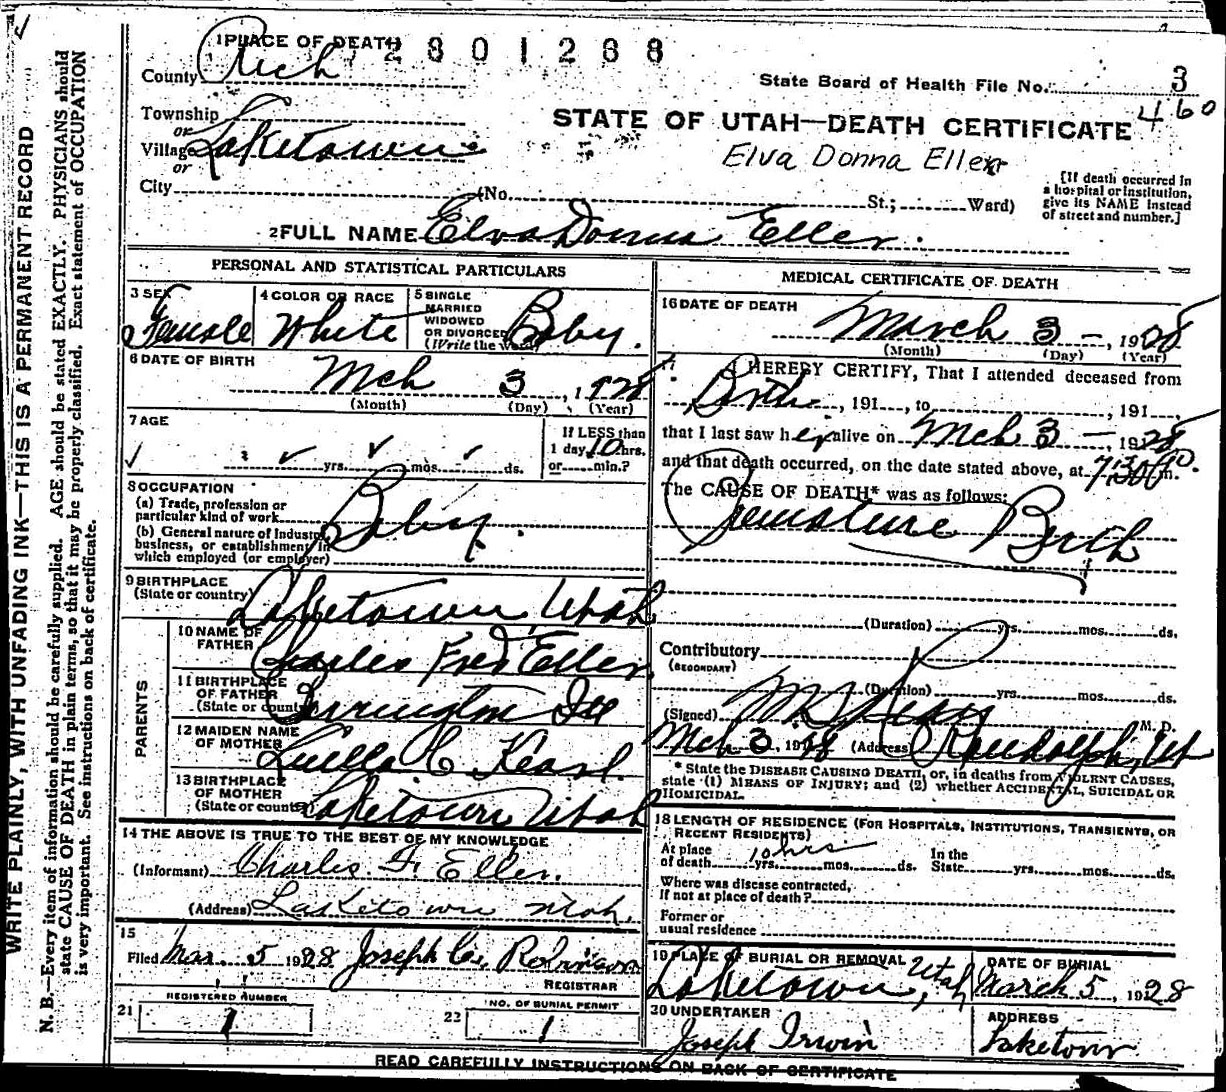 WRITE PLAINLY, WITH UNFADING INK—THIS IS A PERMANENT RECORD
N. B.—Every item of information should be carefully supplied. AGE should be stated EXACTLY. PHYSICIANS should
state CAUSE OF DEATH in plain terms, so that it may be properly classified. Exact statement of OCCUPATION
is very important. See instructions on back of certificate.
1 PLACE OF DEATH
2801288
County Rich
State Board of Health File No. 3
460
Township
or
Village Laketown
or
STATE OF UTAH—DEATH CERTIFICATE
Elva Donna Eller
City (No. St.; Ward)
[If death occurred in
a hospital or institution,
give its NAME instead
of street and number.]
2 FULL NAME Elva Donna Eller.
PERSONAL AND STATISTICAL PARTICULARS
3 SEX Female
4 COLOR OR RACE White
5 SINGLE
MARRIED
WIDOWED
OR DIVORCED
(Write the word)
Baby.
6 DATE OF BIRTH
Mch 3, 1928
(Month) (Day) (Year)
7 AGE
yrs. mos. ds.
If LESS than
1 day, 10 hrs.
or min.?
8 OCCUPATION
(a) Trade, profession or
particular kind of work
Baby.
(b) General nature of industry,
business, or establishment in
which employed (or employer)
9 BIRTHPLACE
(State or country)
Laketown, Utah
PARENTS
10 NAME OF
FATHER
Charles Fred Eller
11 BIRTHPLACE
OF FATHER
(State or country)
Ill
12 MAIDEN NAME
OF MOTHER
Luella C Kearl.
13 BIRTHPLACE
OF MOTHER
(State or country)
Laketown Utah
14 THE ABOVE IS TRUE TO THE BEST OF MY KNOWLEDGE
(Informant) Charles F. Eller.
(Address) Laketown Utah.
15
Filed Mar. 5 1928 Joseph Robinson
REGISTRAR
REGISTERED NUMBER
21 1
NO. OF BURIAL PERMIT
22 1
MEDICAL CERTIFICATE OF DEATH
16 DATE OF DEATH
March 3 —, 1928
(Month) (Day) (Year)
17 I HEREBY CERTIFY, That I attended deceased from
Birth, 191 , to , 191 ,
that I last saw her alive on Mch 3 — 1928
and that death occurred, on the date stated above, at 7:30 P.m.
The CAUSE OF DEATH* was as follows:
Premature Birth
(Duration) yrs. mos. ds.
Contributory
(SECONDARY)
(Duration) yrs. mos. ds.
(Signed) M. D.
Mch 3, 1928 (Address) Randolph, Ut
* State the DISEASE CAUSING DEATH, or, in deaths from VIOLENT CAUSES,
state (1) MEANS OF INJURY; and (2) whether ACCIDENTAL, SUICIDAL OR
HOMICIDAL.
18 LENGTH OF RESIDENCE (FOR HOSPITALS, INSTITUTIONS, TRANSIENTS, OR
RECENT RESIDENTS)
At place
of death 10 hrs yrs. mos. ds.
In the
State yrs. mos. ds.
Where was disease contracted,
if not at place of death?
Former or
usual residence
19 PLACE OF BURIAL OR REMOVAL
Laketown, Utah,
DATE OF BURIAL
March 5, 1928
20 UNDERTAKER
Joseph Irwin
ADDRESS
Laketown
READ CAREFULLY INSTRUCTIONS ON BACK OF CERTIFICATE